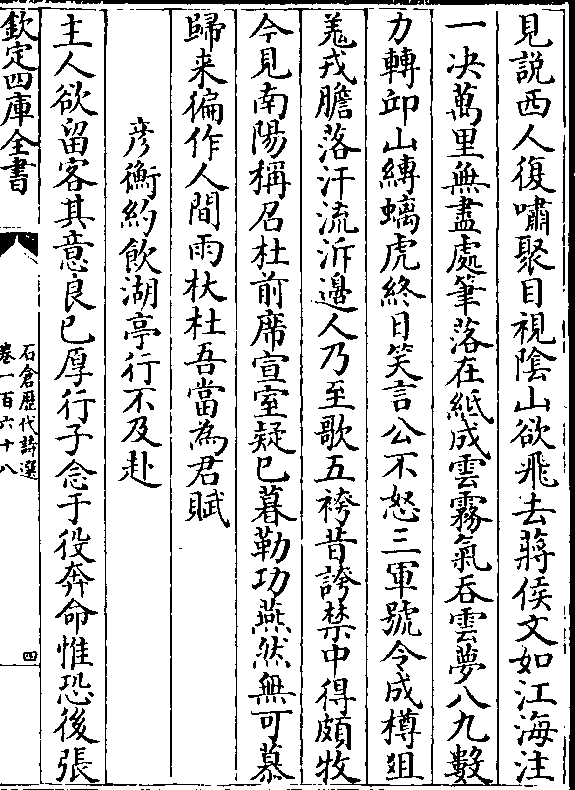 見説西人復嘯聚目視隂山欲飛去蔣侯文如江海注
一决萬里無盡處筆落在紙成雲霧氣吞雲夢八九數
力轉卭山縛螭虎終日笑言公不怒三軍號令成樽俎
羗戎膽落汗流沂邊人乃至歌五袴昔誇禁中得頗牧
今見南陽稱召杜前席宣室疑已暮勒功燕然無可慕
歸来徧作人間雨杕杜吾當為君賦
彦衡約飲湖亭行不及赴
主人欲留客其意良已厚行子念于役奔命惟恐後張
欽定四庫全書
石倉歴代詩選
卷一百六十八
四